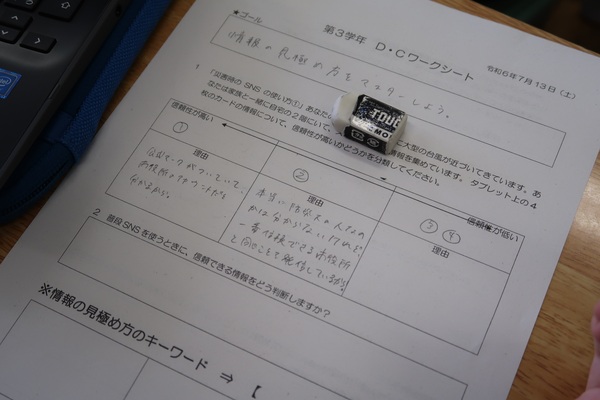 第3学年 D・Cワークシート
令和6年7月13日(土)
★ゴール
情報の見極め方をマスターしよう。
1 「災害時のSNSの使い方①」あな
に大型の台風が近づいてきています。あ
なたは家族と一緒に自宅の2階にいて、
情報を集めています。タブレット上の4
枚のカードの情報について、信頼性が高いかどうかを分類してください。
信頼性が高い
信頼性が低い
①
②
③ ④
理由
理由
理由
公式マークがついていて、
市役所のアカウントだと
分かるから。
本当に防災の人なの
かは分からないけれど、
一番信頼できる市役所
と同じことを発信しているから。
2 普段SNSを使うときに、信頼できる情報をどう判断しますか?
※情報の見極め方のキーワード ⇒ 【
TRUE
intel